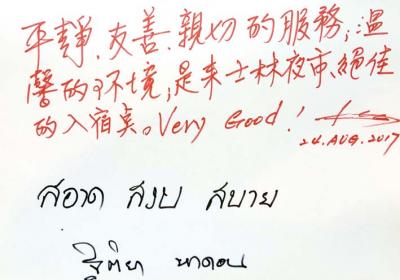 平靜、友善、親切的服務，溫
馨的環境，是来士林夜市、絕佳
的入宿桌。Very Good!
24.AUG.2017
สอาด สงบ สบาย